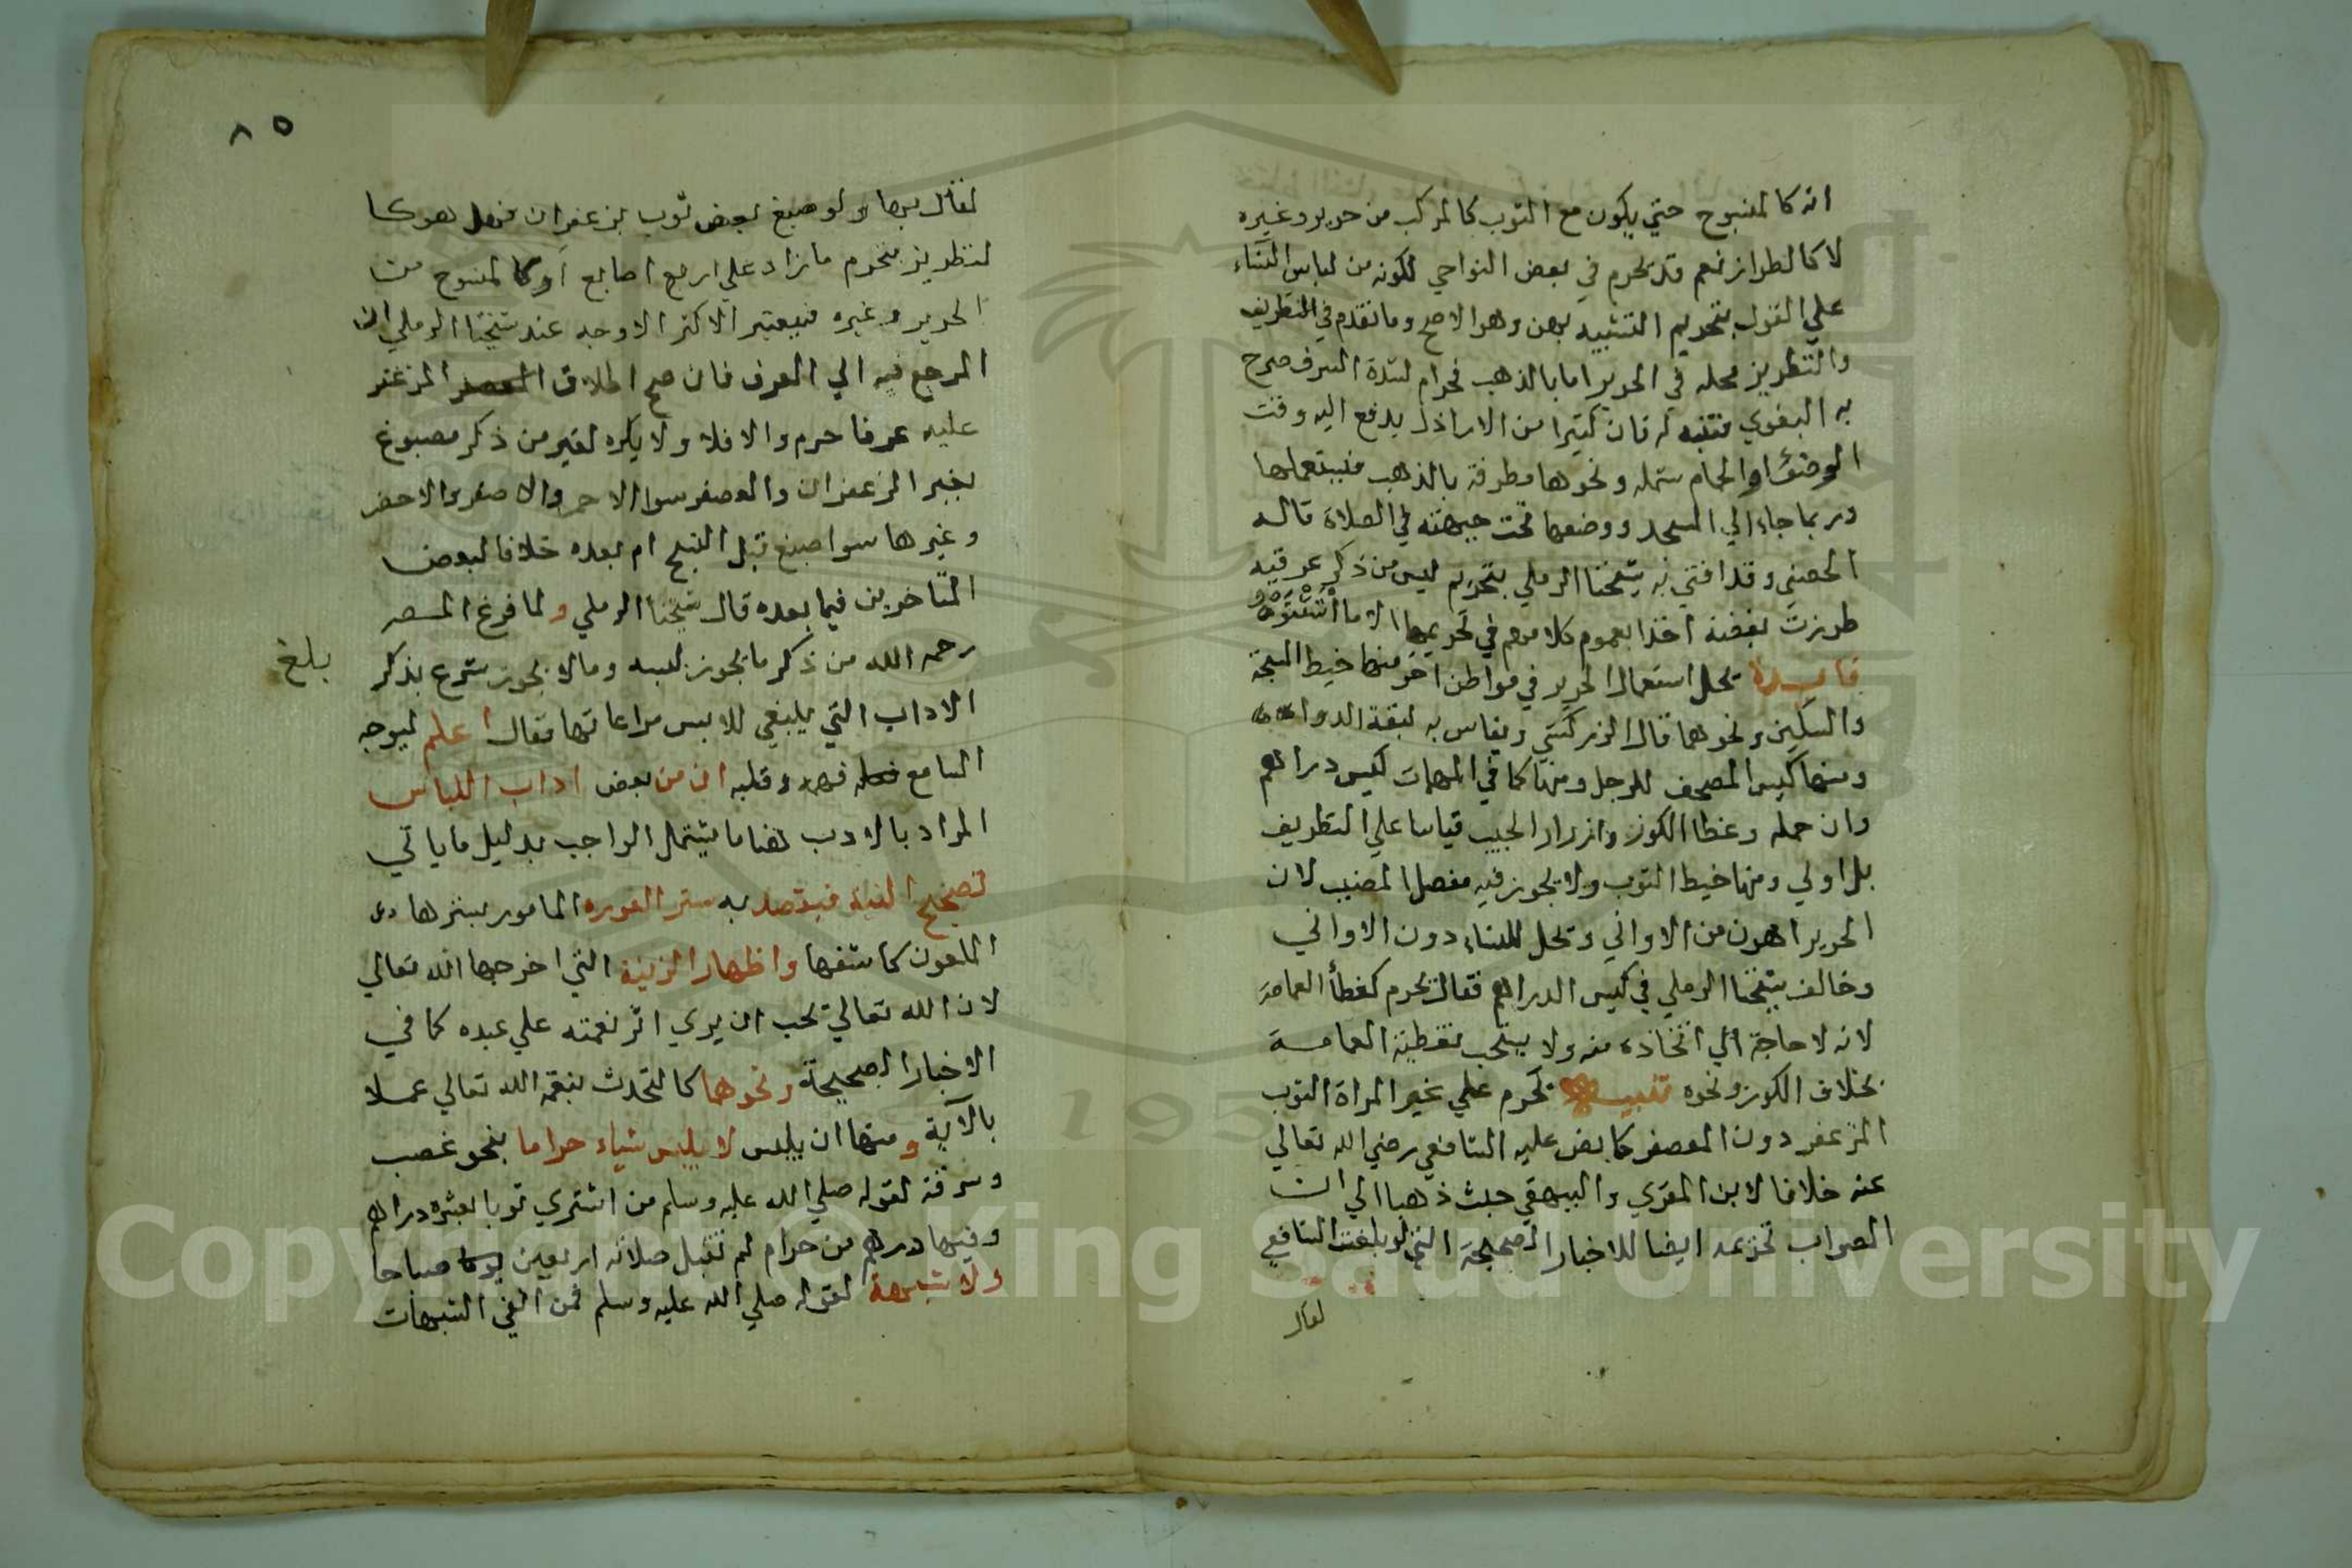 انه كالمنسوج حتي يكون مع الثوب كالمركب من حرير وغيره
لا كالطراز نعم قد يحرم في بعض النواحي لكونه من لباس النساء
علي القول بتحريم التشبيه بهن وهو الاصح وما تقدم في التطريف
والتطريز محله في الحرير اما بالذهب فحرام لشدة السرف صرح
به البغوي فتنبه له فان كثيرا من الاراذل يدفع اليه وقت
الوضؤ او الحمام شمله ونحوها مطرفة بالذهب فيستعملها
وربما جاء الي المسجد ووضعها تحت جبهته في الصلاة قاله
الحصني وقد افتي به شيخنا الرملي بتحريم لبس من ذكر عرقيه
طرزت بفضة اخذا بعموم كلامهم في تحريمها الا ما استثنوه
فايدة يحل استعمال الحرير في مواطن اخر منها خيط السبحة
والسكين ونحوهما قال الزركشي ويقاس به ليقة الدواة
ومنها كيس المصحف للرجل ومنها كما في المهمات كيس دراهم
وان حمله وغطا الكوز وازرار الجيب قياسا علي التطريف
بل اولي ومنها خيط الثوب ولا يجوز فيه مفصل المضبب لان
الحرير اهون من الاواني وتحل للنساء دون الاواني
وخالف شيخنا الرملي في كيس الدراهم فقال يحرم كغطأ العمامة
لانه لا حاجة الي اتخاذه منه ولا يستحب تغطية العمامة
بخلاف الكوز ونحوه تنبيه يحرم علي غير المراة الثوب
المزعفر دون المعصفر كما نص عليه الشافعي رضي الله تعالي
عنه خلافا لابن المقري والبيهقي حيث ذهبا الي ان
الصواب تحريمه ايضا للاخبار الصحيحة التي لو بلغت الشافعي
لقال
٨٥
لقال بها ولو صبغ بعض ثوب بزعفران فهل هو كا
لتطريز فيحرم ما زاد علي اربع اصابع او كالمنسوج من
الحرير وغيره فيعتبر الاكثر الاوجه عند شيخنا الرملي ان
المرجع فيه الي العرف فان صح اطلاق المزعفر
عليه عرفا حرم والا فلا ولا يكره لغير من ذكر مصبوغ
بغير الزعفران والعصفر سوا الاحمر والاصفر والاخضر
وغيرها سوا صبغ قبل النسج ام بعده خلافا لبعض
المتاخرين فيما بعده قال شيخنا الرملي ولما فرغ المصنف
رحمه الله من ذكر ما يجوز لبسه وما لا يجوز شرع بذكر
بلغ
الاداب التي ينبغي للابس مراعاتها فقال اعلم ليوجه
السامع فهمه وقلبه ان من بعض اداب اللباس
المراد بالادب هنا ما يشمل الواجب بدليل ما ياتي
تصحيح النية فيقصد به ستر العورة المامور بسترها
الملعون كاشفها واظهار الزينة التي اخرجها الله تعالي
لان الله تعالي يحب ان يري اثر نعمته علي عبده كما في
الاخبار الصحيحة ونحوها كالتحدث بنعمة الله تعالي عملا
بالآية ومنها ان يلبس لا يلبس شياء حراما بنحو غصب
وسرقة لقوله صلي الله عليه وسلم من اشتري ثوبا بعشرة دراهم
وفيها درهم من حرام لم تقبل صلاته اربعين صباحا
ولا شبهة لقوله صلي الله عليه وسلم فمن اتقي الشبهات
Copyright © King Saud University
195